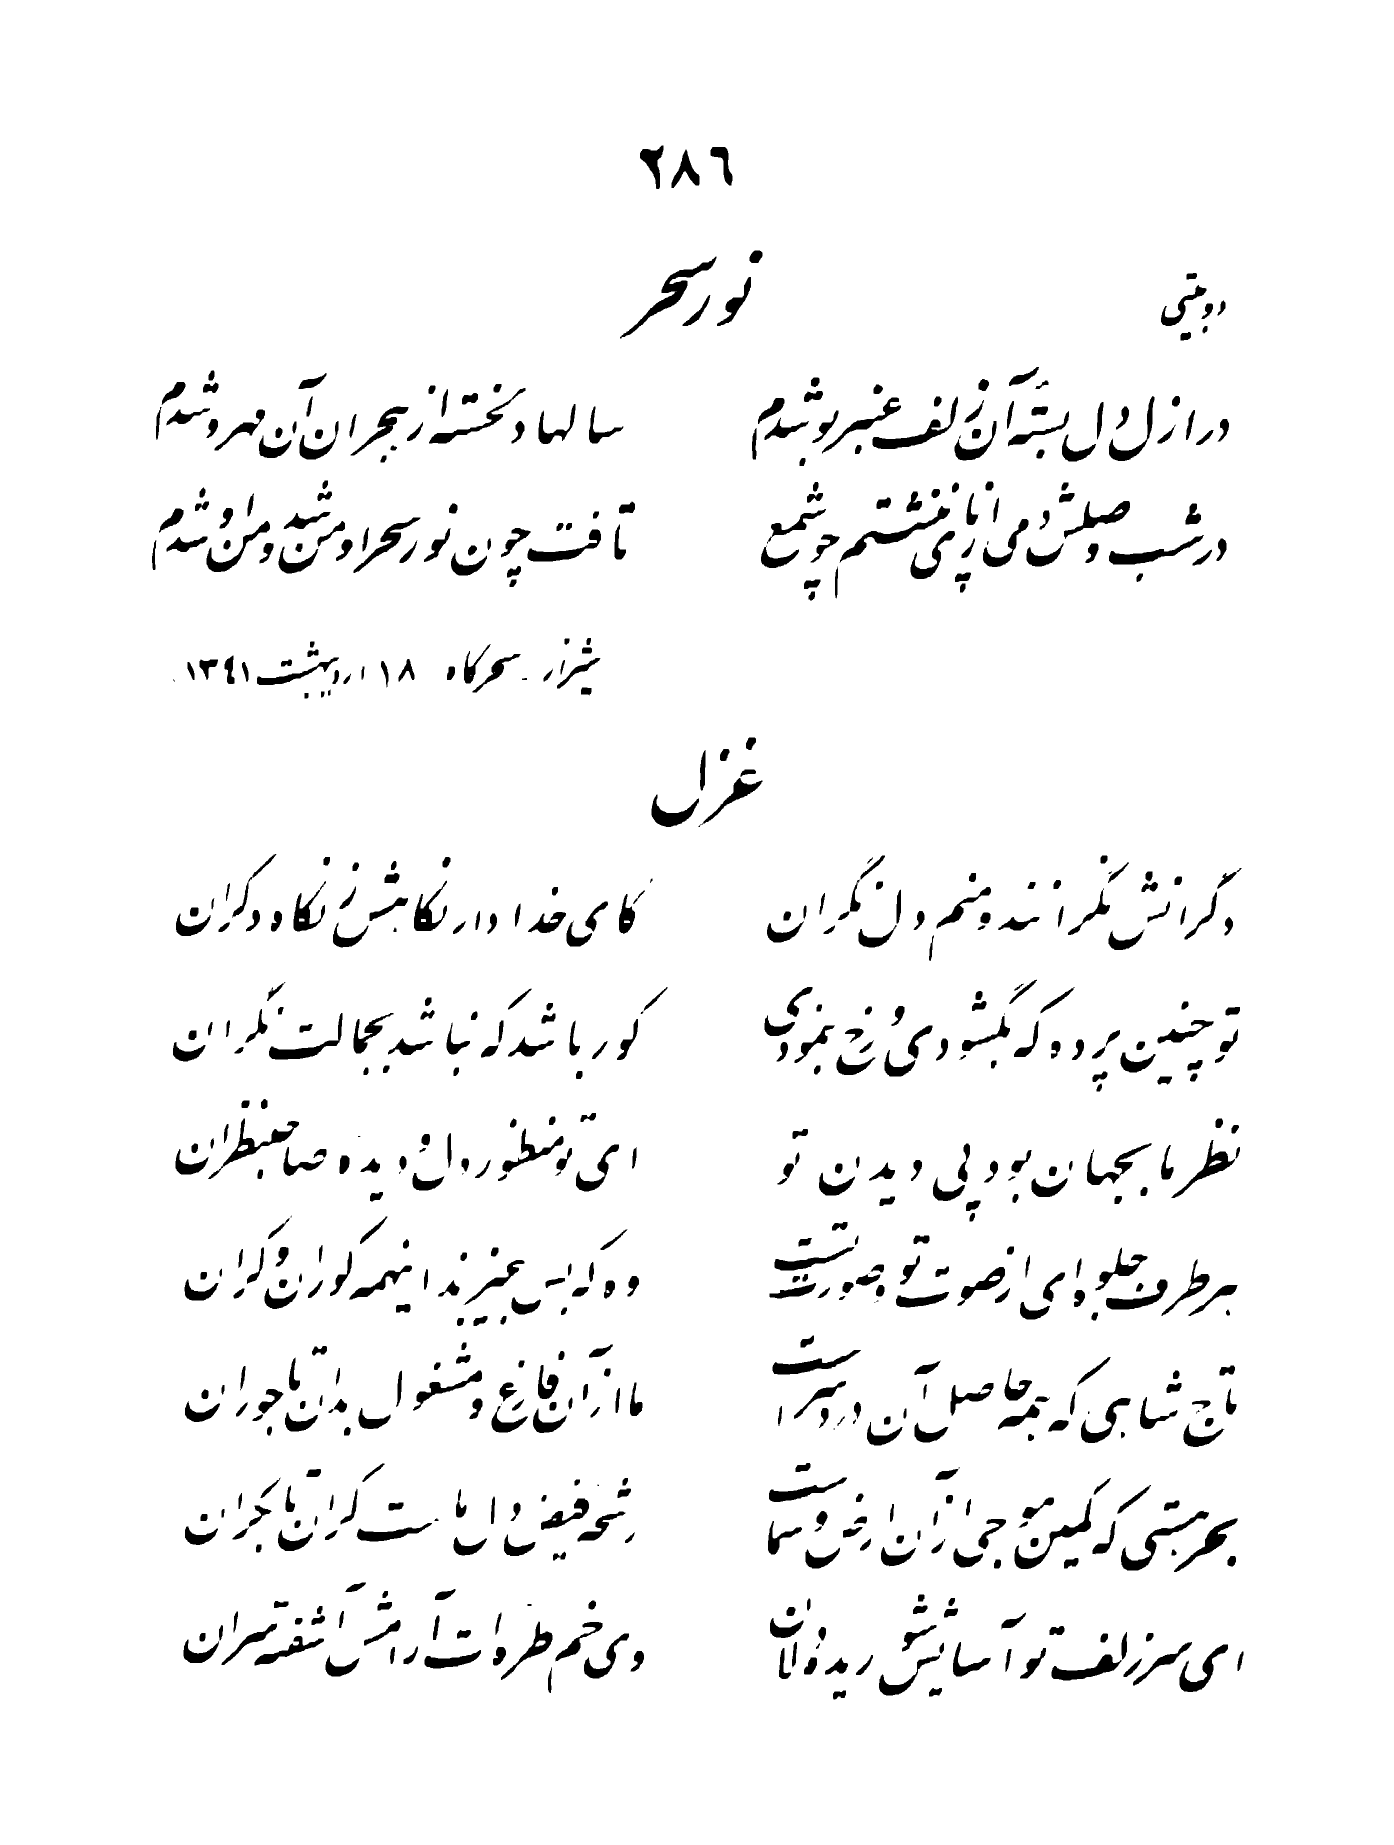 ۲۸۶
دوبیتی
نور سحر
در ازل دل بستهٔ آن زلف عنبر بو شدم    سالها دلخسته از هجران آن مهرو شدم
در شب وصلش دمی از پای ننشستم چو شمع    تافت چون نور سحر او من شد و من او شدم
شیراز - سحرگاه ۱۸ اردیبهشت ۱۳۴۱
غزل
دگرانش نگرانند و منم دل نگران    کای خدا دار نگاهش ز نگاه دگران
تو چنین پرده که بگشودی و رخ بنمودی    کور باشد که نباشد بجمالت نگران
نظر ما بجهان بود پی دیدن تو    ای تو منظور دل و دیده صاحبنظران
هر طرف جلوه‌ای از صوت تو و صورت تست    وه که بس بیخبرند اینهمه کوران و کران
تاج شاهی که همه حاصل آن دردسر است    ما از آن فارغ و مشغول بدان تاجوران
بحر هستی که کمین موجی از آن ارض و سماست    رشحه فیض دل ماست کران تا بکران
ای سر زلف تو آسایش شوریده دلان    وی خم طره‌ات آرامش آشفته سران